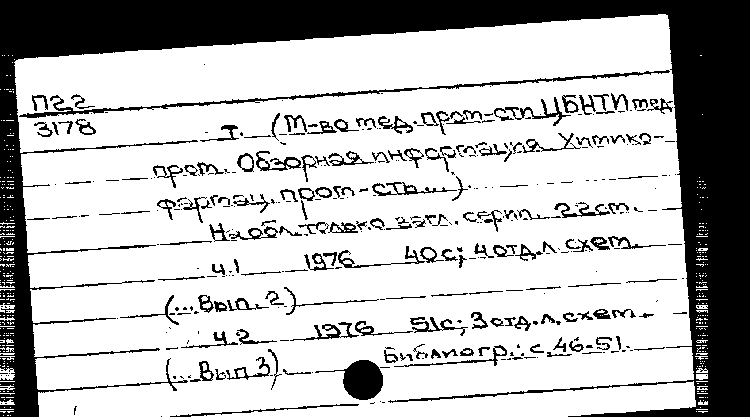 П22
3178
т. (М-во мед. пром-сти ЦБНТИ мед.
пром. Обзорная информация Химико-
фармац. пром-сть...).
На обл. только загл. серии. 22 см.
ч.1 1976 40 с; 4 отд. л. схем.
(...Вып. 2)
ч.2 1976 51 с; 3 отд. л. схем.
(...Вып 3). Библиогр.: с. 46-51.